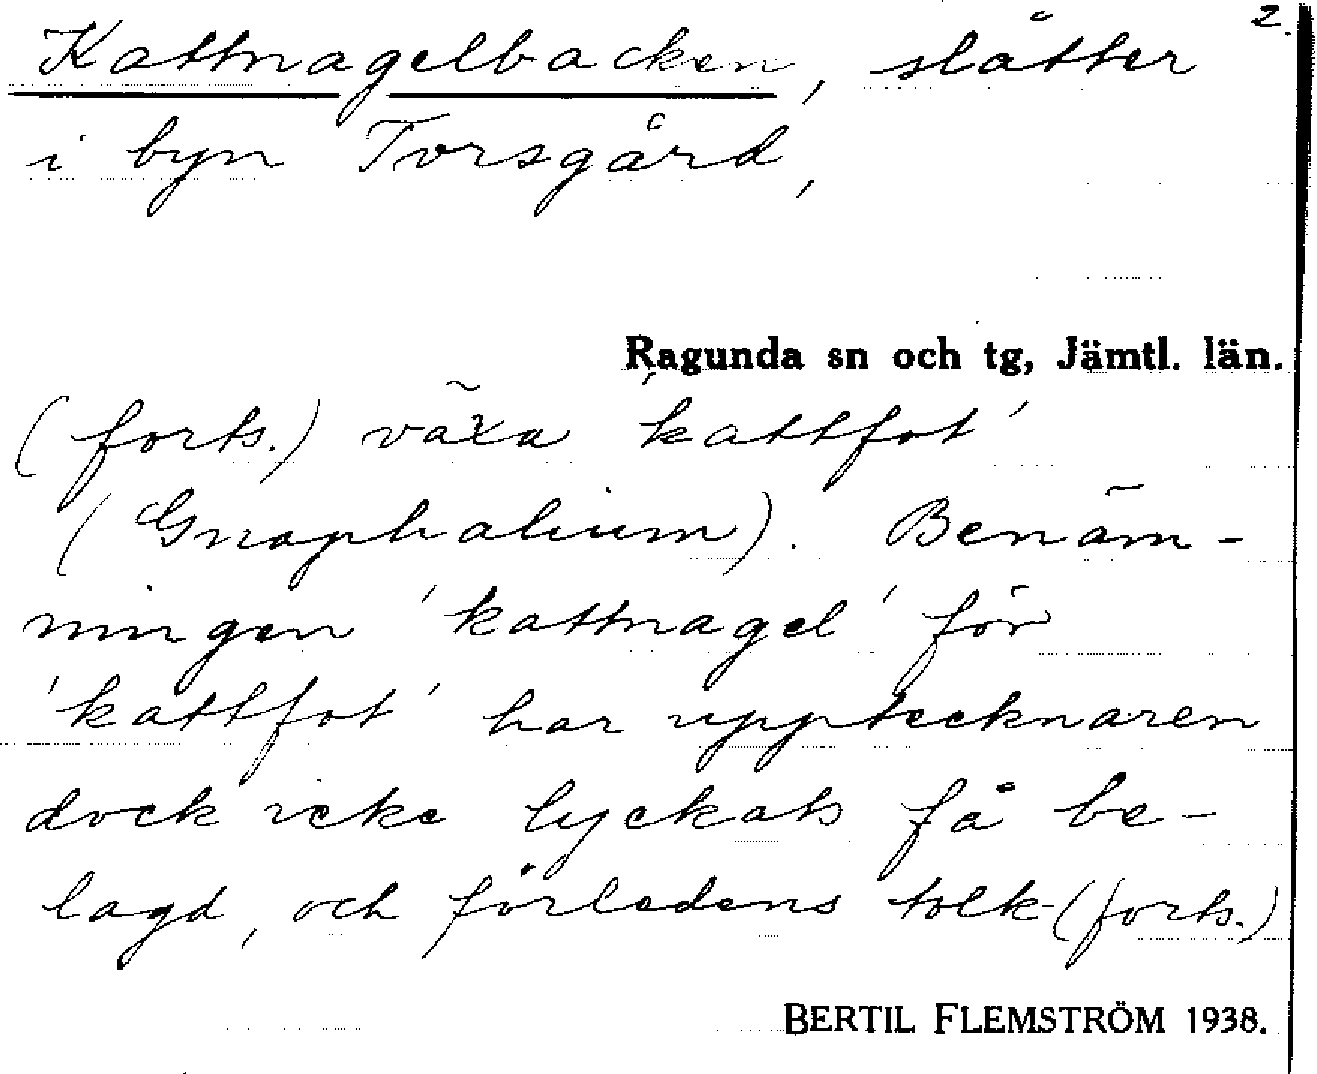 Kattnagelbacken, slåtter 2.
i byn Torsgård,
Ragunda sn och tg, Jämtl. län.
(forts.) växa 'kattfot'
(Gnaphalium). Benäm-
ningen 'kattnagel' för
'kattfot' har upptecknaren
dock icke lyckats få be-
lagd, och förledens tolk-(forts.)
BERTIL FLEMSTRÖM 1938.